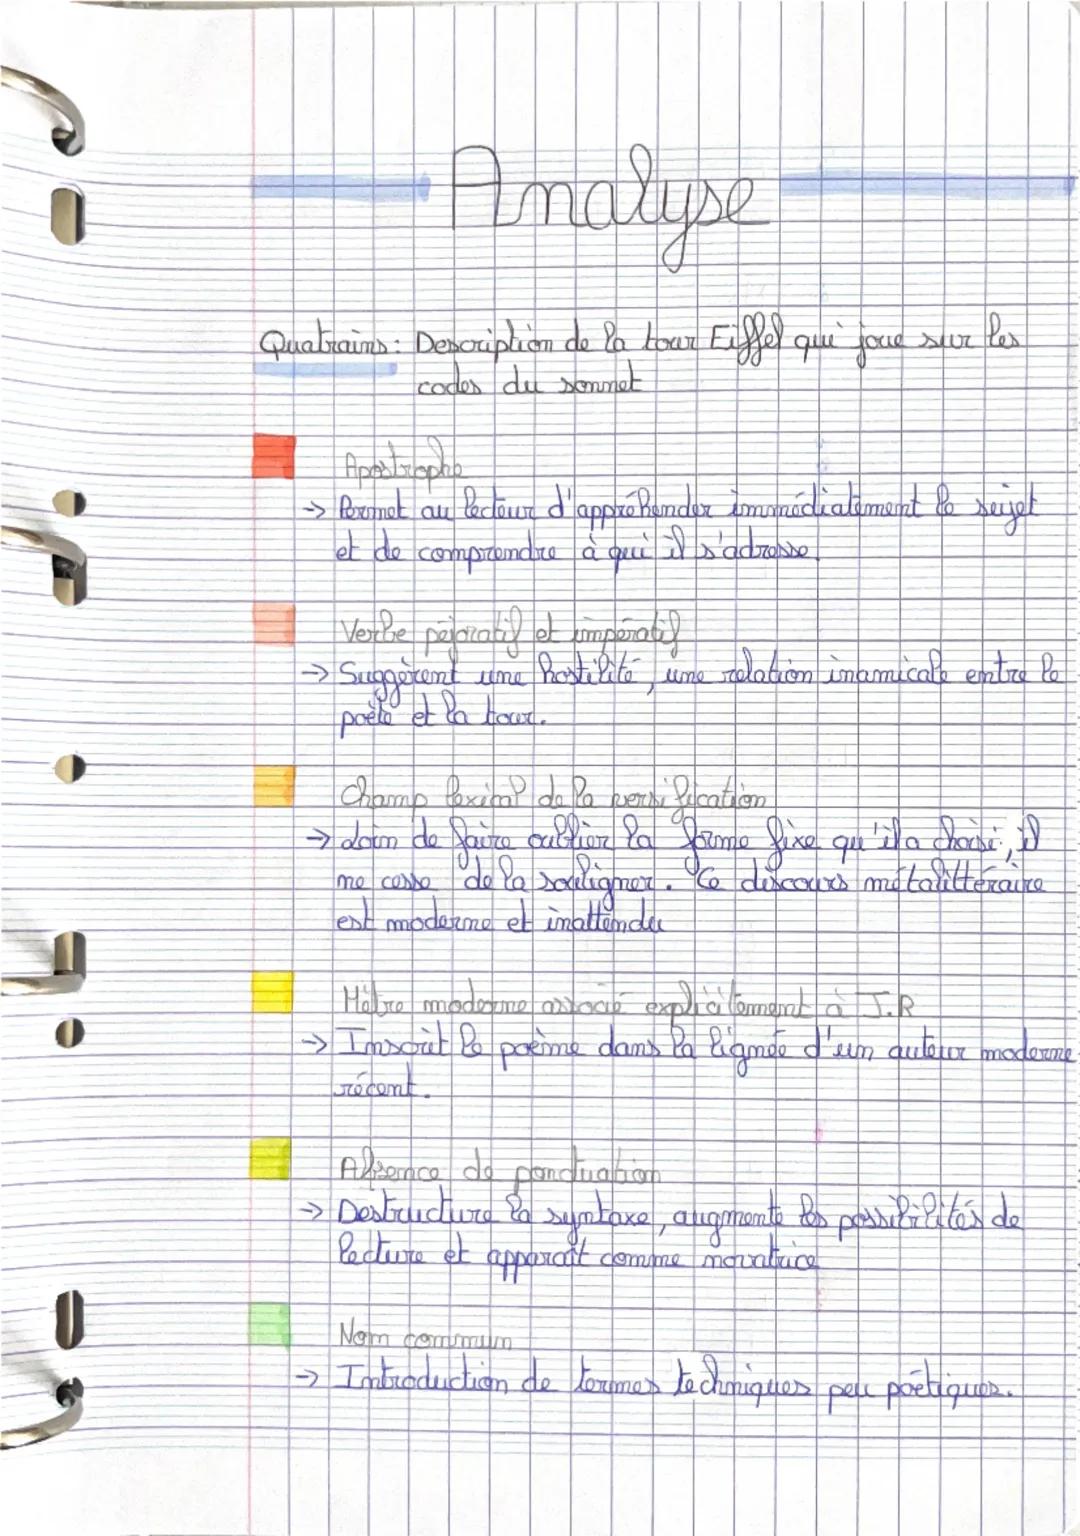 Analyse
Quatrains : Description de la tour Eiffel qui joue sur les
codes du sonnet
Apostrophe
→ Permet au lecteur d'appréhender immédiatement le sujet
et de comprendre à qui il s'adresse.
Verbe péjoratif et impératif
→ Suggèrent une hostilité, une relation inamicale entre le
poète et la tour.
Champ lexical de la versification
→ Loin de faire oublier la forme fixe qu'il a choisi, il
ne cesse de la souligner. Ce discours métalittéraire
est moderne et inattendu
Mètre moderne associé explicitement à J.R
→ Inscrit le poème dans la lignée d'un auteur moderne
récent.
Absence de ponctuation
→ Destructure la syntaxe, augmente les possibilités de
lecture et apparaît comme novatrice
Nom commun
→ Introduction de termes techniques peu poétiques.